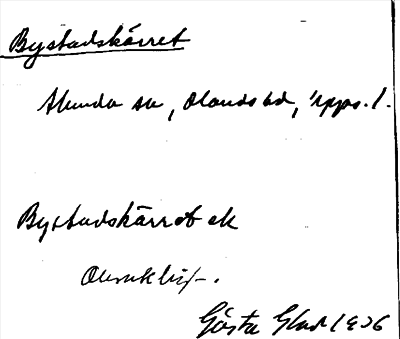 Bystadskärret
Alunda sn, Olands hd, Upps. l.
Bystadskärret ek
Gösta Glad 1926